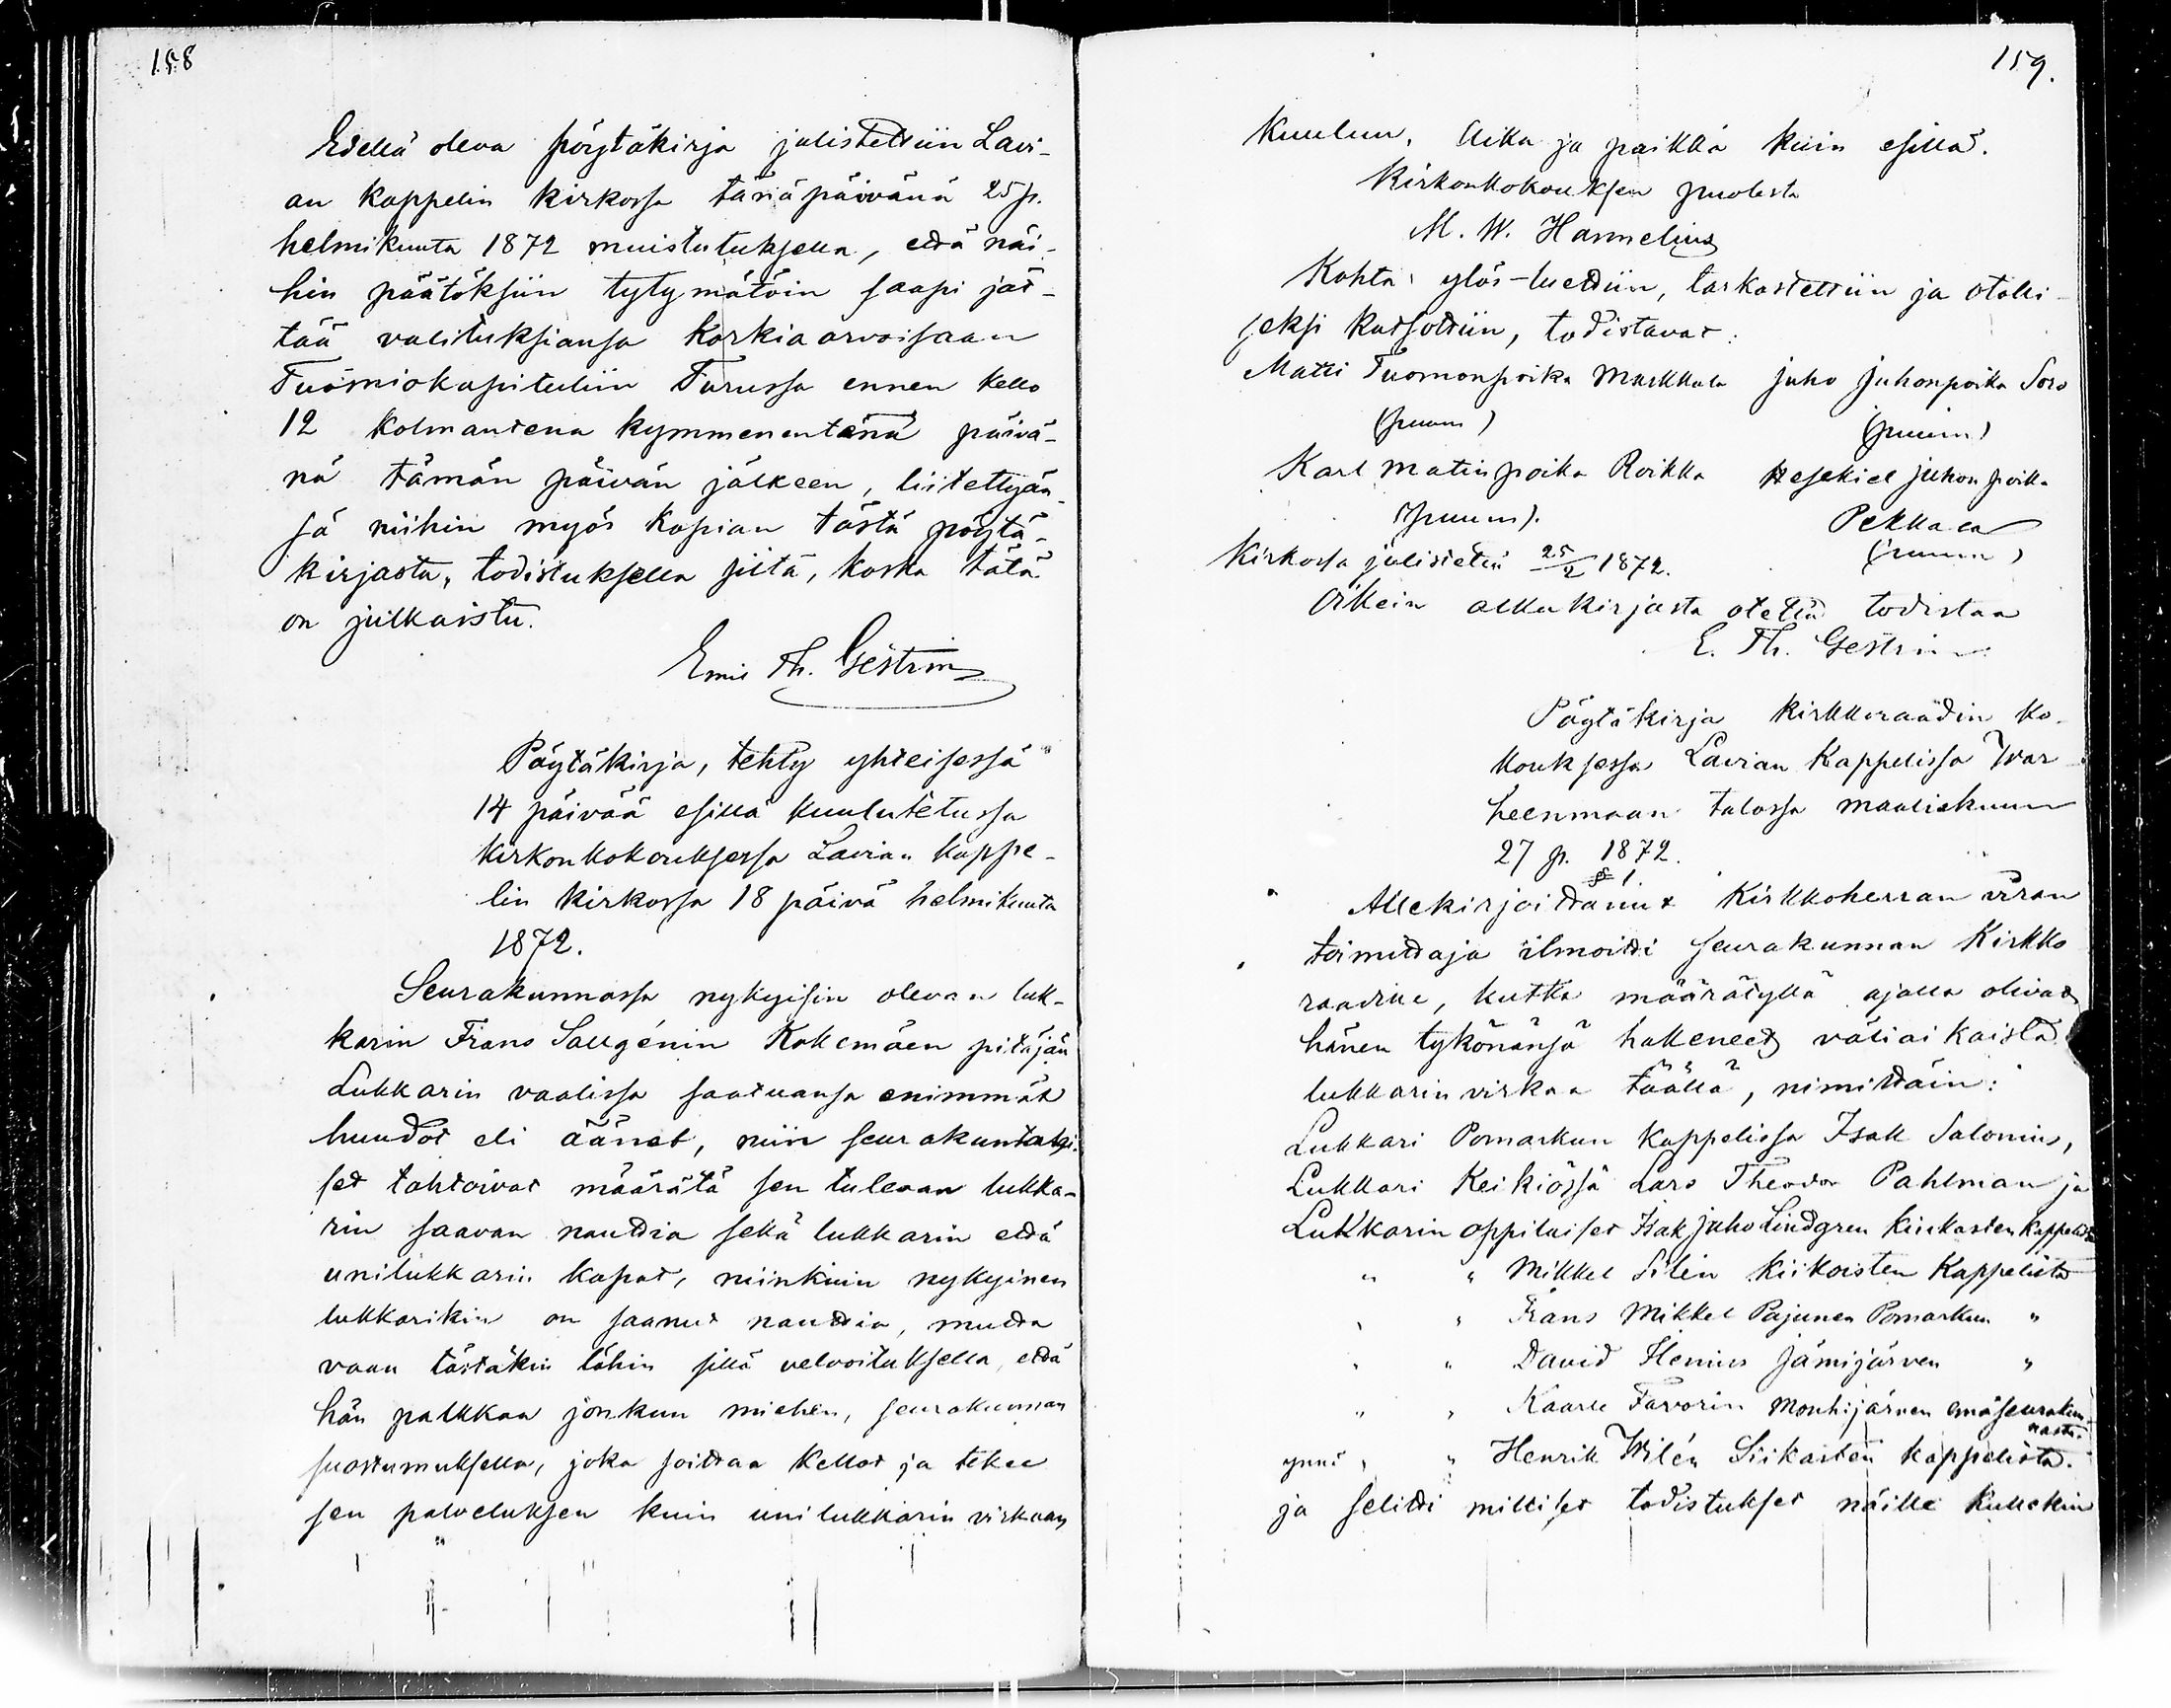 158
Edellä oleva pöytäkirja julistettiin Lavi-
an kappelin kirkossa tänäpäivänä 25 p.
helmikuuta 1872 muistutuksella, että näi-
hin päätöksiin tytymätöin saapi jät-
tää valituksiansa Korkia arvoisaan
Tuomiokapituliin Turussa ennen kello
12 kolmantena kymmenentenä päivä-
nä tämän päivän jälkeen, liitettyän-
sä niihin myös kopian tästä pöytä-
kirjasta, todistuksella siitä, koska tätä
on julkaistu.
Emil Th. Gestrin
Pöytäkirja, tehty yhteisessä
14 päivää esillä kuulutetussa
kirkonkokouksessa Lavian kappe-
lin kirkossa 18 päivä helmikuuta
1872.
Seurakunnassa nykyisin olevan luk-
karin Frans Sallgénin Kokemäen pitäjän
Lukkarin vaalissa saatuansa enimmät
huudot eli äänet, niin seurakuntalai-
set tahtoivat määrätä sen tulevan lukka-
rin saavan nauttia sekä lukkarin että
unilukkarin kapat, niinkuin nykyinen
lukkarikin on saanut nauttia, mutta
vaan tästäkin lähin sillä velvoituksella, että
hän palkkaa jonkun miehen, seurakunnan
suostumuksella, joka soittaa kellot ja tekee
sen palveluksen kuin unilukkarin virkaan
159.
kuuluu. Aika ja paikka kuin esillä.
Kirkonkokouksen puolesta
M. W. Hannelius
Kohta ylös-luettiin, tarkastettiin ja otolli-
seksi katsottiin, todistavat:
Matti Tuomonpoika Markkula Juho Juhonpoika Soro
(puum) (puum)
Karl Matinpoika Roikka Hesekiel Juhonpoika
(puum). Pekkala
Kirkossa julistetti 25/2 1872. (puum)
Oikein alkukirjasta otettu todistaa
E. Th. Gestrin
Pöytäkirja kirkkoraadin ko-
kouksessa Lavian Kappelissa Ivar
heenmaan talossa maaliskuun
27 p. 1872.
§ 1.
Allekirjoittanut Kirkkoherran viran
toimittaja ilmoitti seurakunnan Kirkko
raadille, kutka määrätyllä ajalla olivat
hänen tykönänsä hakeneet väliaikaista
lukkarin virkaa täällä, nimittäin:
Lukkari Pomarkun kappelissa Isak Salonius,
Lukkari Keikiössä Lars Theodor Pahlman ja
Lukkarin oppilaiset Isak Juho Lindgren Kiukasten kappelista
" " Mikkel Silén Kiikoisten Kappelista
" " Frans Mikkel Pajunen Pomarkun "
" " David Henius Jämijärven "
" " Kaarle Favorin Mouhijärven emäseurakun-
nasta.
ynnä " " Henrik Wilén Siikaisten kappelista.
ja selitti milliset todistukset näille kullekin